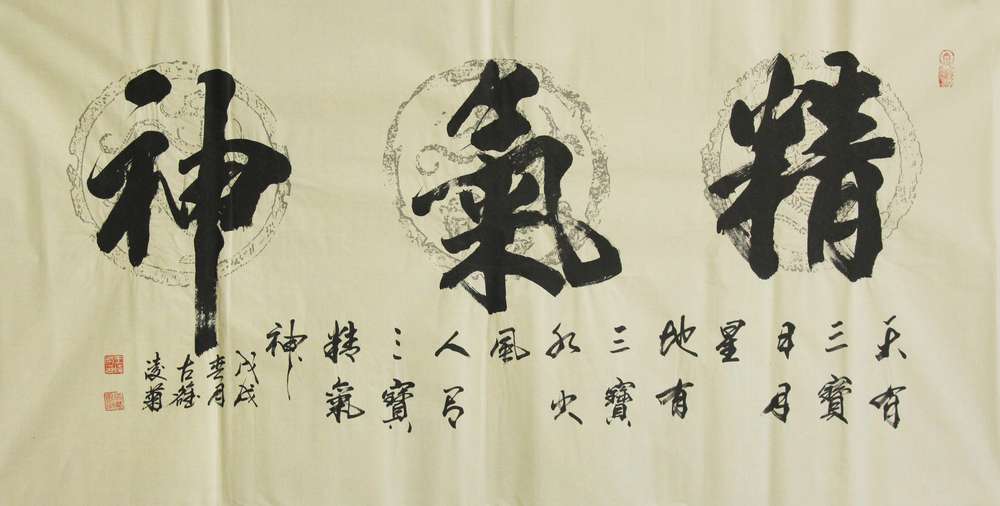 精氣神
天有
三寶
日月
星
地有
三寶
水火
風
人有
三寶
精氣
神
戊戌
月
古
凌菊